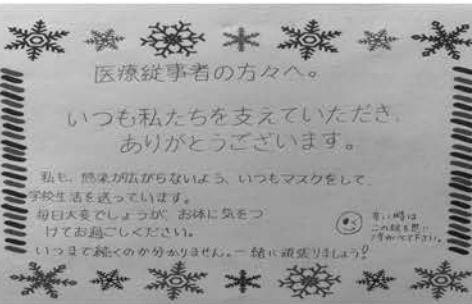 医療従事者の方々へ。
いつも私たちを支えていただき、
ありがとうございます。
私も、感染が広がらないよう、いつもマスクをして、
学校生活を送っています。
毎日大変でしょうが、お体に気をつ
けてお過ごしください。
いつまで続くのか分かりません。一緒に頑張りましょう!
時は
この絵を思い
浮かべて下さい。